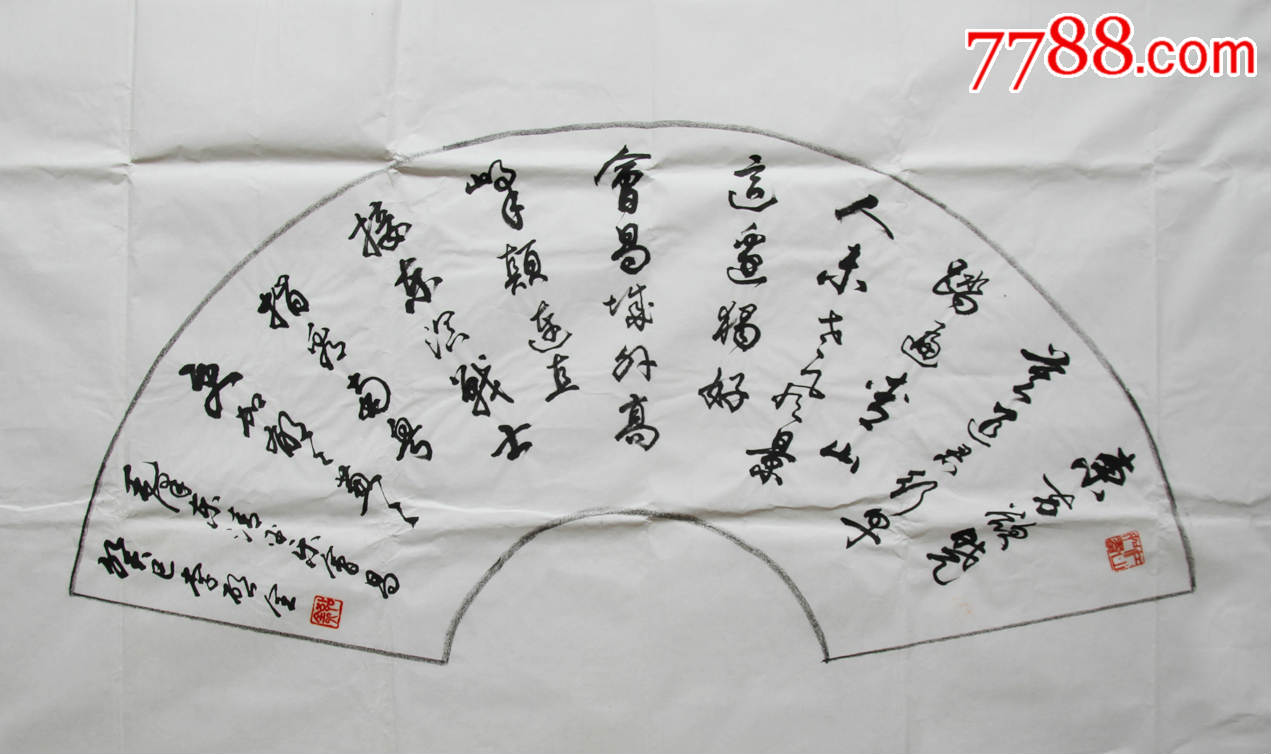 7788.com
東方欲曉
莫道君行早
踏遍青山
人未老风景
這邊獨好
會昌城外高
峰顛連直
接東溟戰士
指看南粤
更加郁々葱々
毛澤東清平樂會昌
癸巳李金